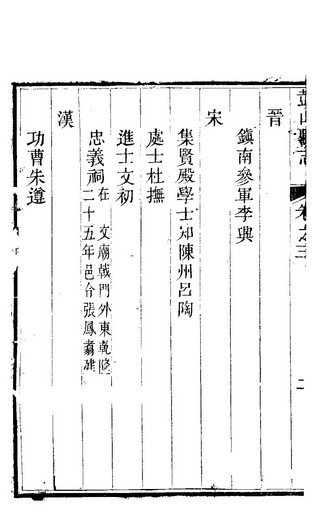 彭山縣志 卷之三 二
晉
鎮南參軍李興
宋
集賢殿學士知陳州呂陶
處士杜撫
進士文初
忠義祠在文廟戟門外東乾隆
二十五年邑令張鳳翥建
漢
功曹朱遵